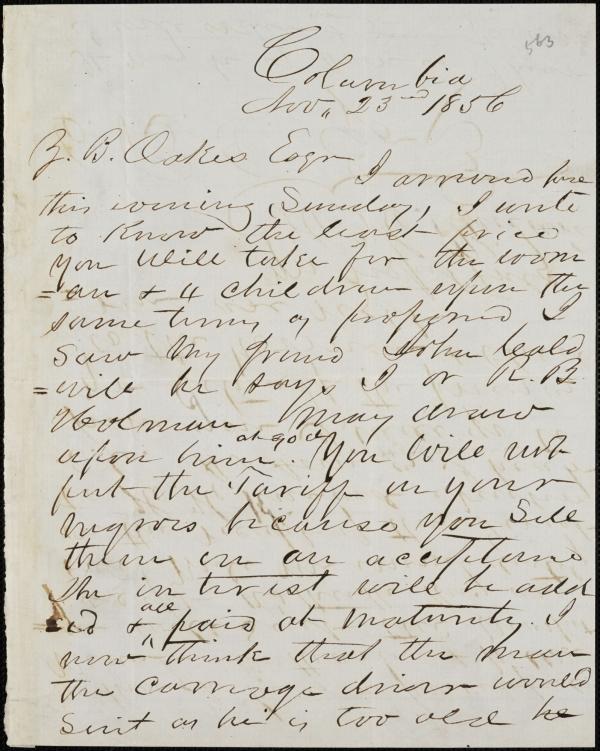 563
Columbia
Nov,, 23rd 1856
Z. B. Oakes Esqr
I arrived here
this evening, Sunday, I write
to Know the least price
you will take for the wom
=an & 4 children upon the
same terms as proposed I
saw my friend John Cald
=well he says I or R. B.
Holman may draw
upon him at 90 d. You will not
put the Tariff on your
negroes because you sell
them on an acceptance
the interest will be add
=ed & all paid at maturity. I
now think that the man
the carriage driver would
suit as he is too old he